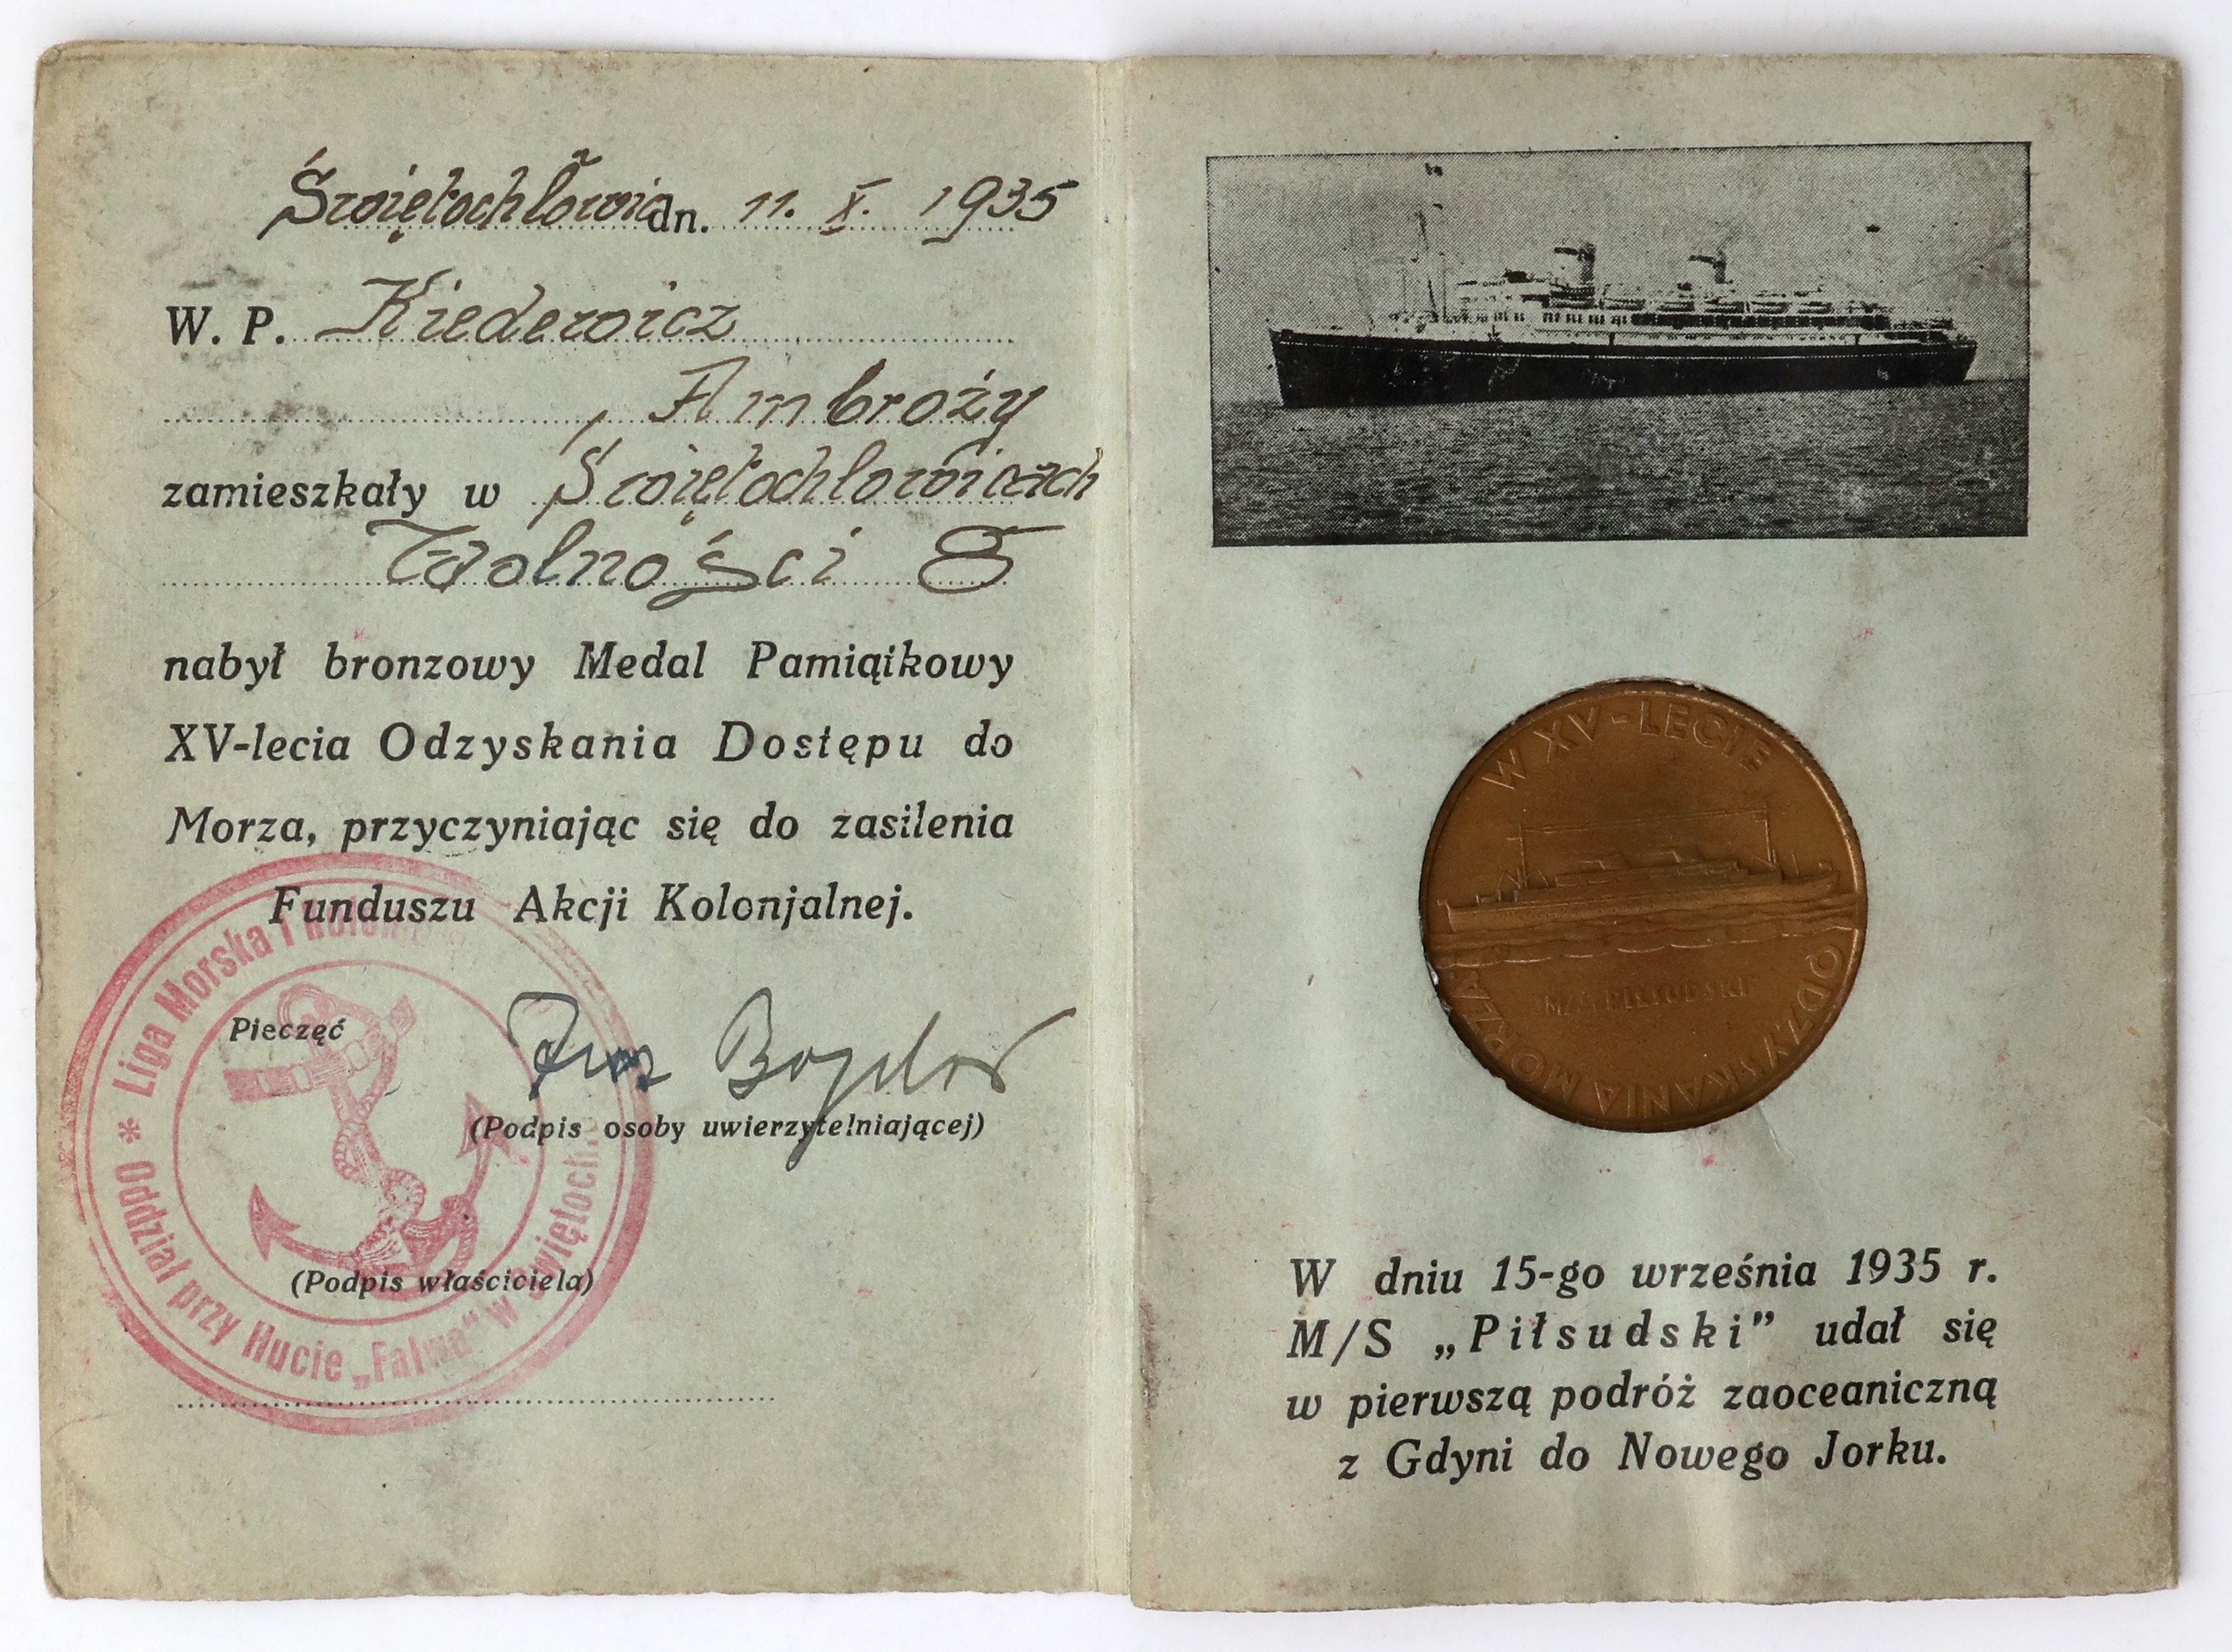 Świętochłowic dn. 11. X. 1935
W. P. Kiederoicz
, Ambroży
zamieszkały w Świętochłowicach
Wolności 8
nabył bronzowy Medal Pamiątkowy
XV-lecia Odzyskania Dostępu do
Morza, przyczyniając się do zasilenia
Funduszu Akcji Kolonjalnej.
Liga Morska i
* Oddział przy Hucie „Falwa" w Świętoch
Pieczęć
(Podpis osoby uwierzytelniającej)
(Podpis właściciela)
W XV-LECIE
ODZYSKANIA MORZA
M/S PIŁSUDSKI
W dniu 15-go września 1935 r.
M/S „Piłsudski” udał się
w pierwszą podróż zaoceaniczną
z Gdyni do Nowego Jorku.